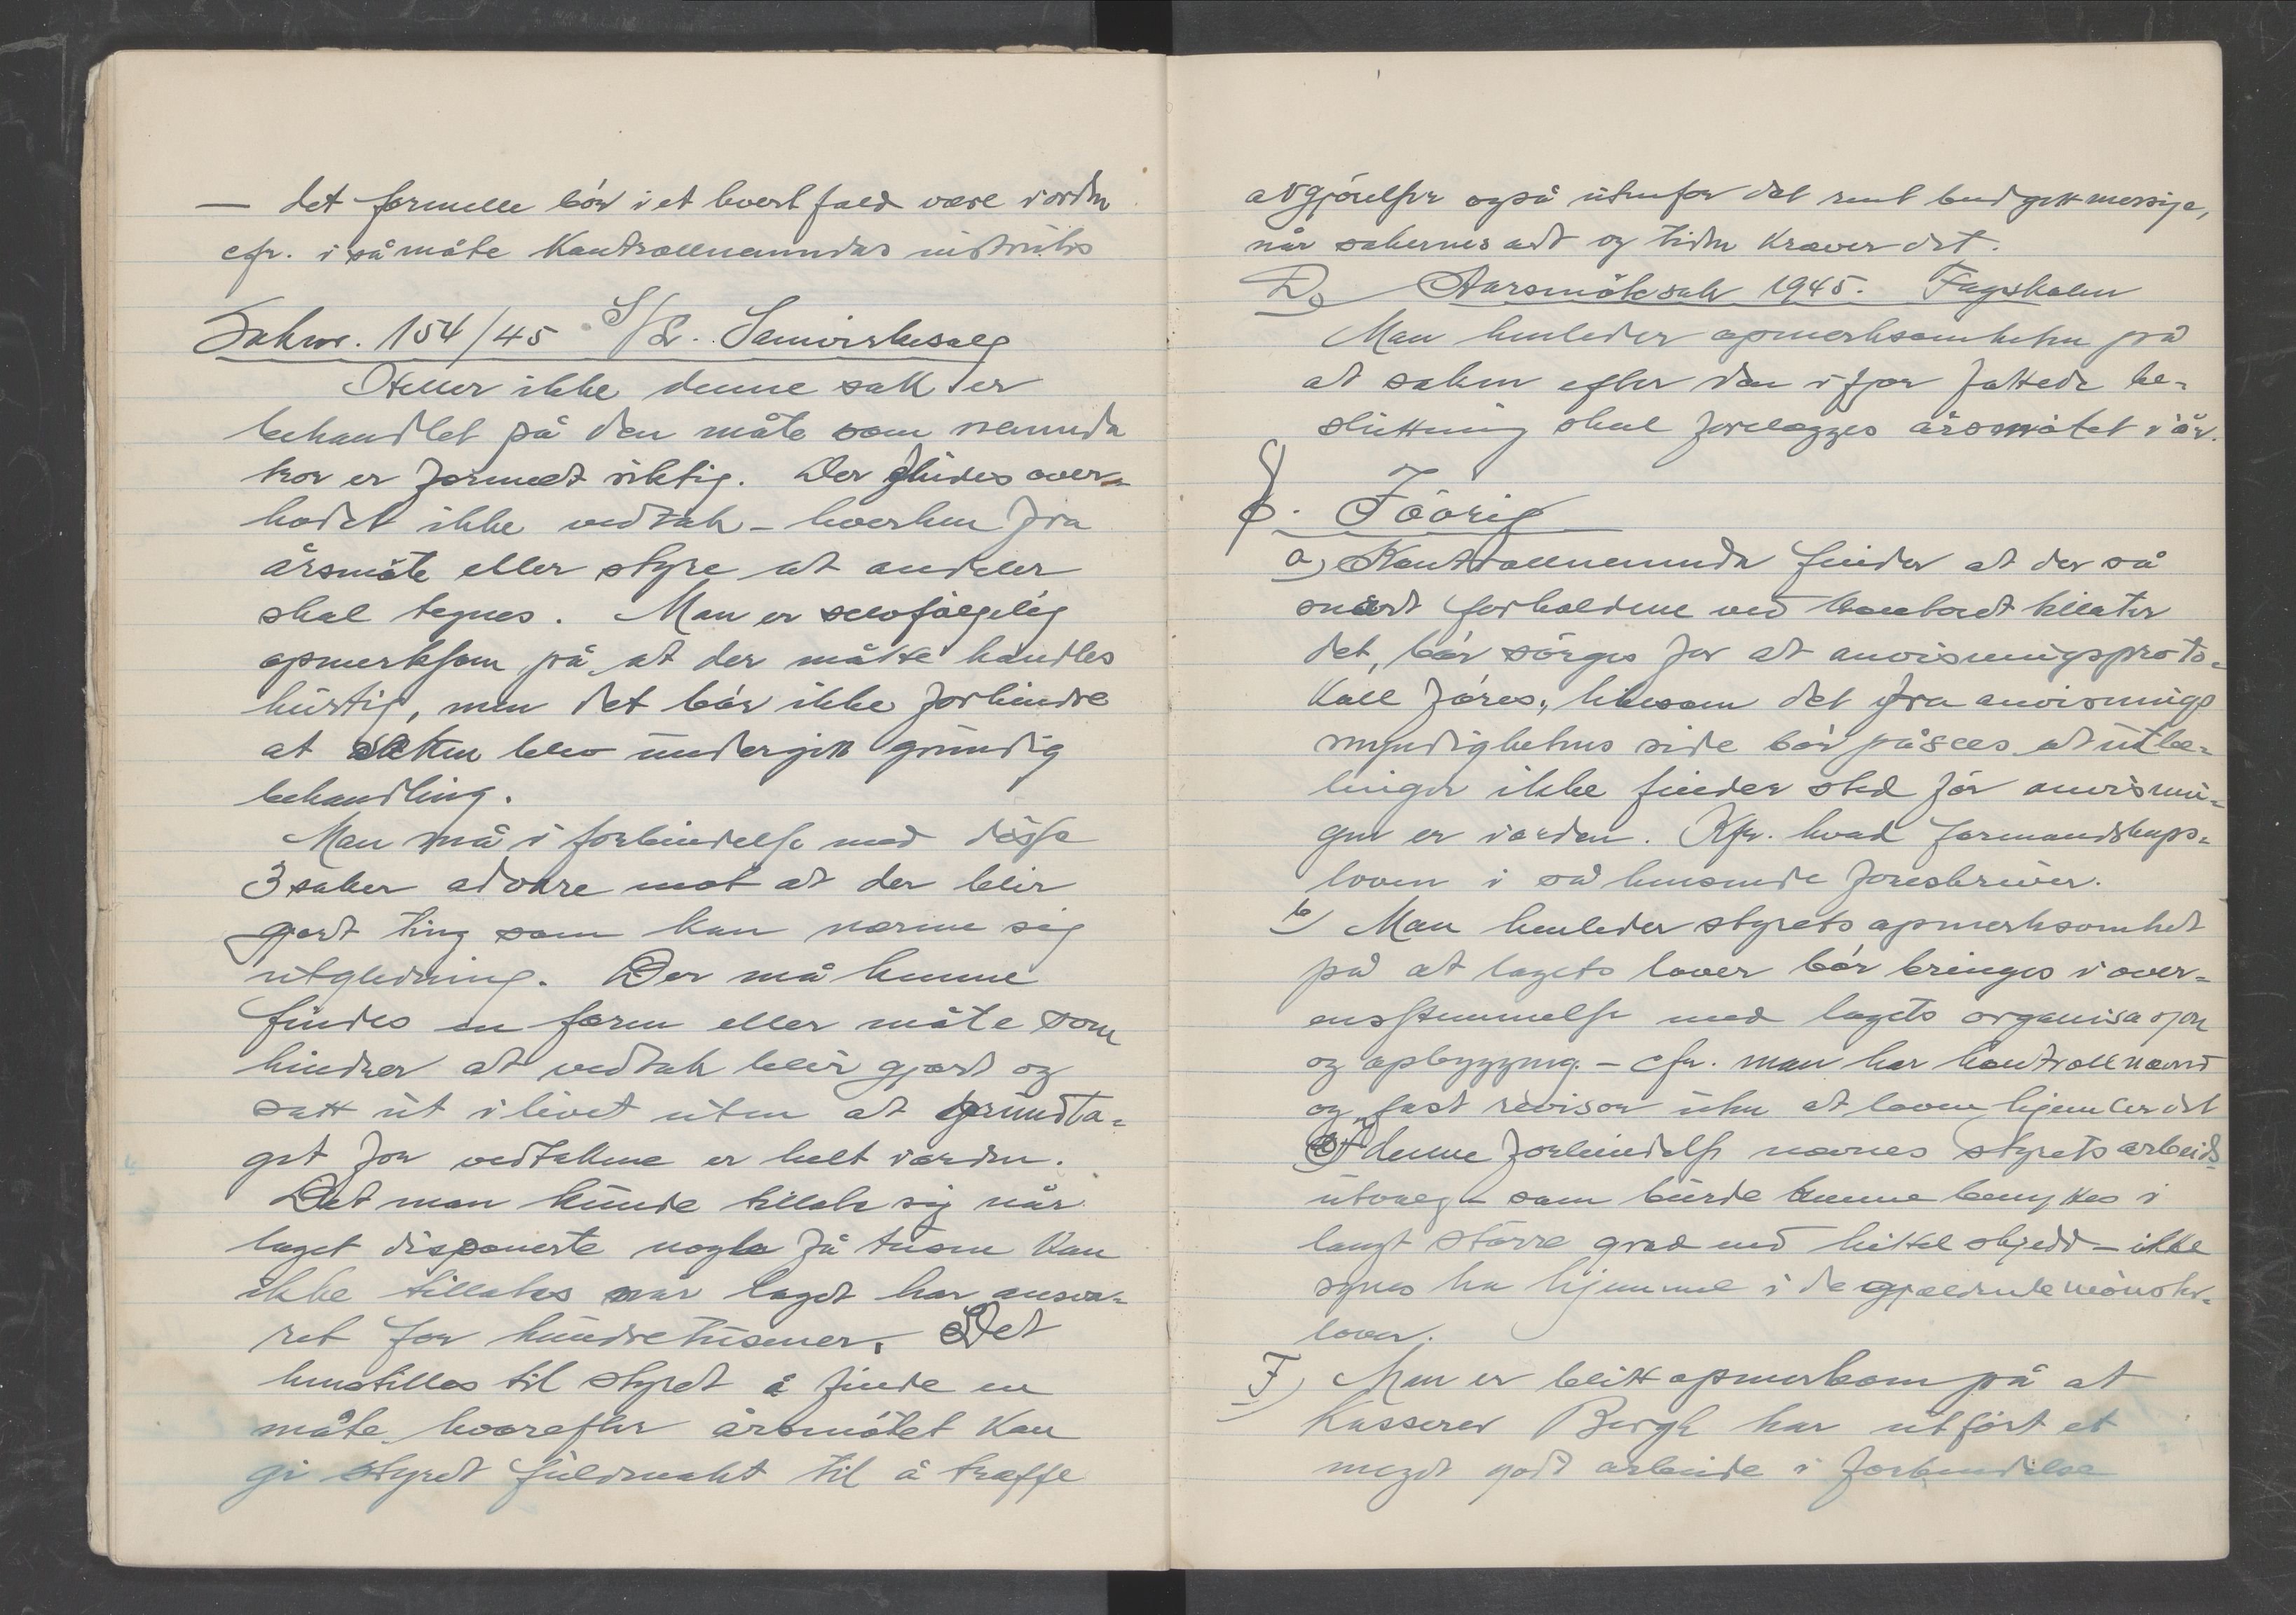 — det formelle bör i et hvert fald være i orden
cfr. i så måte Kontrollnemndas instruks
Saknr. 154/45 S/L. Samvirkesalg
Heller ikke denne sak er
behandlet på den måte som nemnda
tror er formelt riktig. Der findes over-
hodet ikke vedtak – hverken fra
årsmöte eller styre at andeler
skal tegnes. Man er selvfölgelig
opmerksom på, at der måtte handles
hurtig, men det bör ikke forhindre
at saken blev undergitt grundig
behandling.
Man må i forbindelse med disse
3 saker advare mot at der blir
gjort ting som kan nærme sig
utglidning. Der må kunne
findes en form eller måte som
hindrer at vedtak blir gjort og
satt ut i livet uten at grundla-
get for vedtakene er helt i orden.
Det man kunde tillate sig når
laget disponerte nogle få tusen kan
ikke tillates når laget har ansva-
ret for hundretusener. Det
henstilles til styret å finde en
måte hvorefter årsmötet kan
gi styret fuldmakt til å træffe
avgjörelser også utenfor det rent budgettmessige,
når sakernes art og tiden kræver det.
D. Aarsmöksak 1945. Fagskolen
Man henleder opmerksomheten på
at saken efter den ifjor fattede be-
slutning skal forelægges årsmötet i år.
E. Forövrig
a) Kontrollnemnda finder at der så
snart forholdene ved kontoret tillater
det, bör sörges for at anvisningsproto-
koll föres, likesom det fra anvisnings
myndighetens side bör påsees at utbe-
linger ikke finder sted för anvisnin-
gen er i orden. Kfr. hvad formandskaps-
loven i så henseende foreskriver.
b) Man henleder styrets opmerksomhet
på at lagets lover bör bringes i over-
ensstemmelse med lagets organisasjon
og opbygging. – cfr. man har kontrollnemnd
og fast revisor uten at loven hjemler det
I denne forbindelse nevnes styrets arbeids
utvalg – som burde kunne benyttes i
langt större grad end hittil skjedd – ikke
synes ha hjemmel i de gjældende mönster-
lover.
F) Man er blitt opmerksom på at
Kasserer Bergh har utfört et
meget godt arbeide i forbindelse